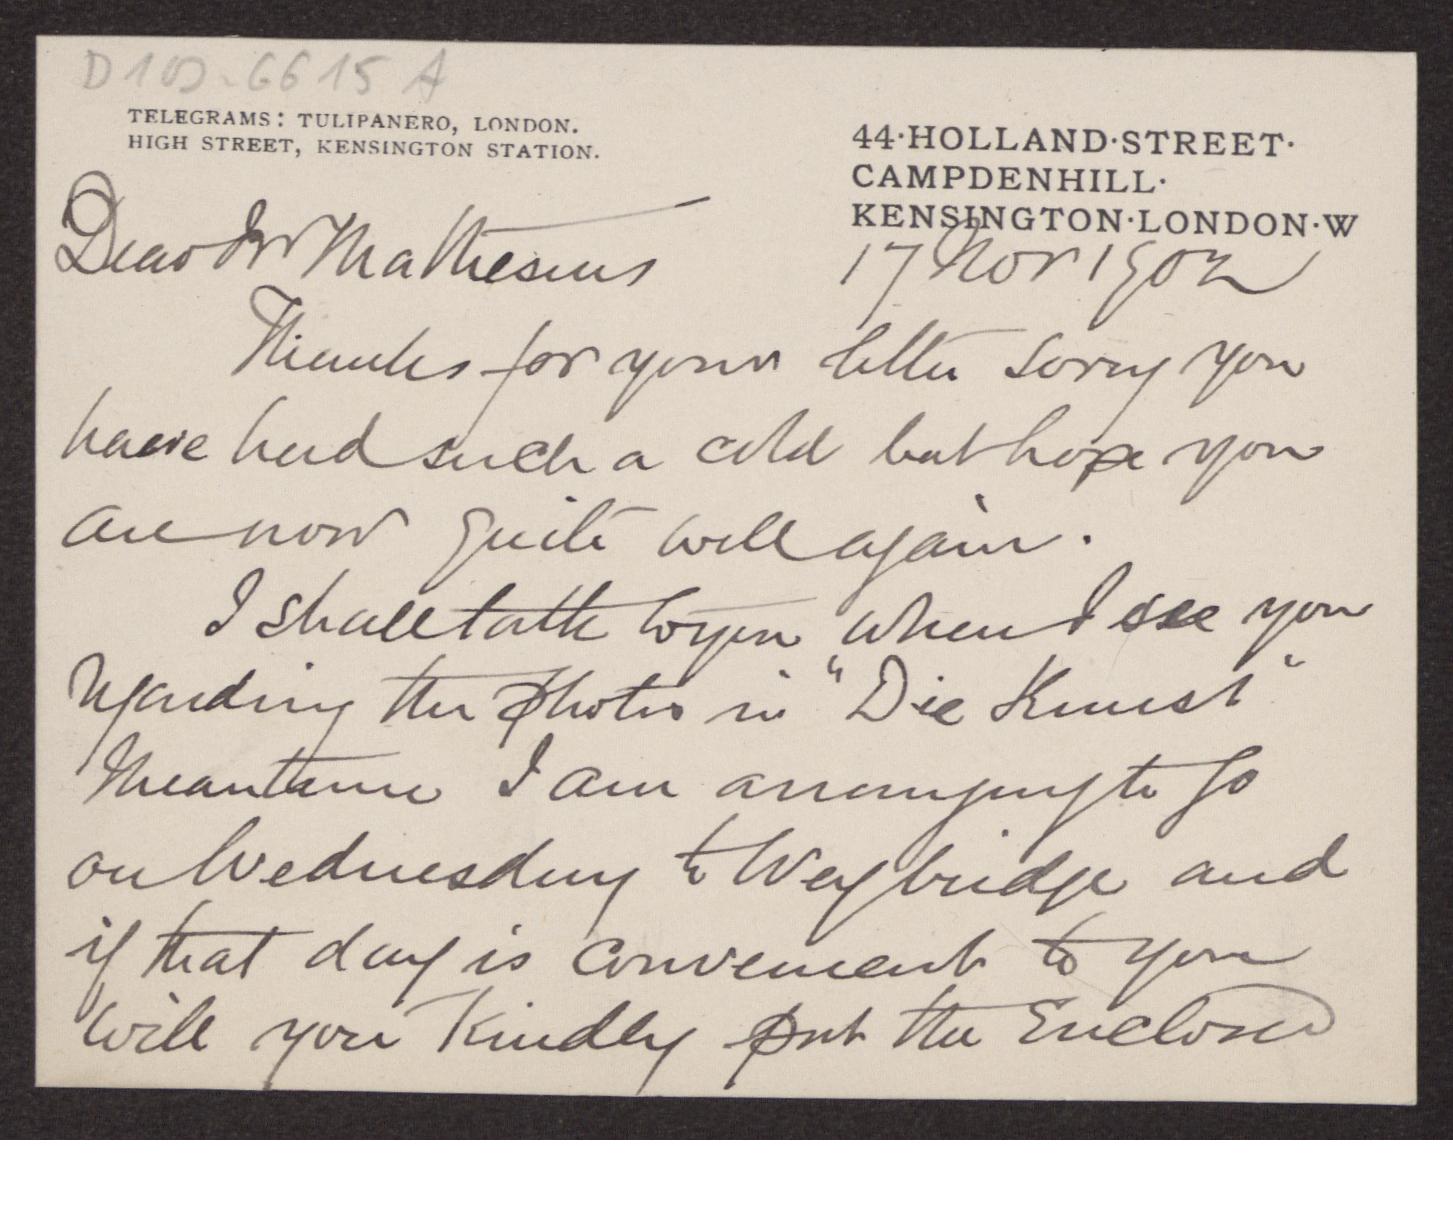 D 102-6615 A
TELEGRAMS: TULIPANERO, LONDON.
HIGH STREET, KENSINGTON STATION.
44·HOLLAND·STREET·
CAMPDENHILL·
KENSINGTON·LONDON·W
17 Nov 1902
Dear Mr Mathesius
Thanks for your letter sorry you
have had such a cold but hope you
are now quite well again.
I shall talk to you when I see you
regarding the photos in "Die Kunst"
Meantime I am arranging to go
on Wednesday to Weybridge and
if that day is convenient to you
will you kindly put the enclosed